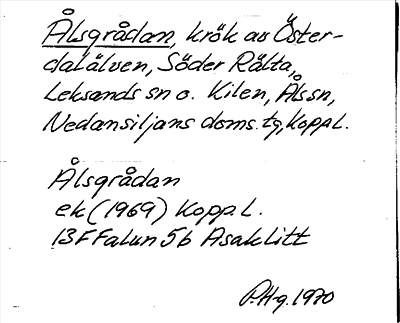 Ålsgrådan, krök av Öster-
dalälven, Söder Rälta,
Leksands sn o. Kilen, Åls sn,
Nedansiljans doms. tg, Koppl.
Ålsgrådan
ek (1969) Kopp. l.
13F Falun 5b Asaklitt
P.Hg. 1970